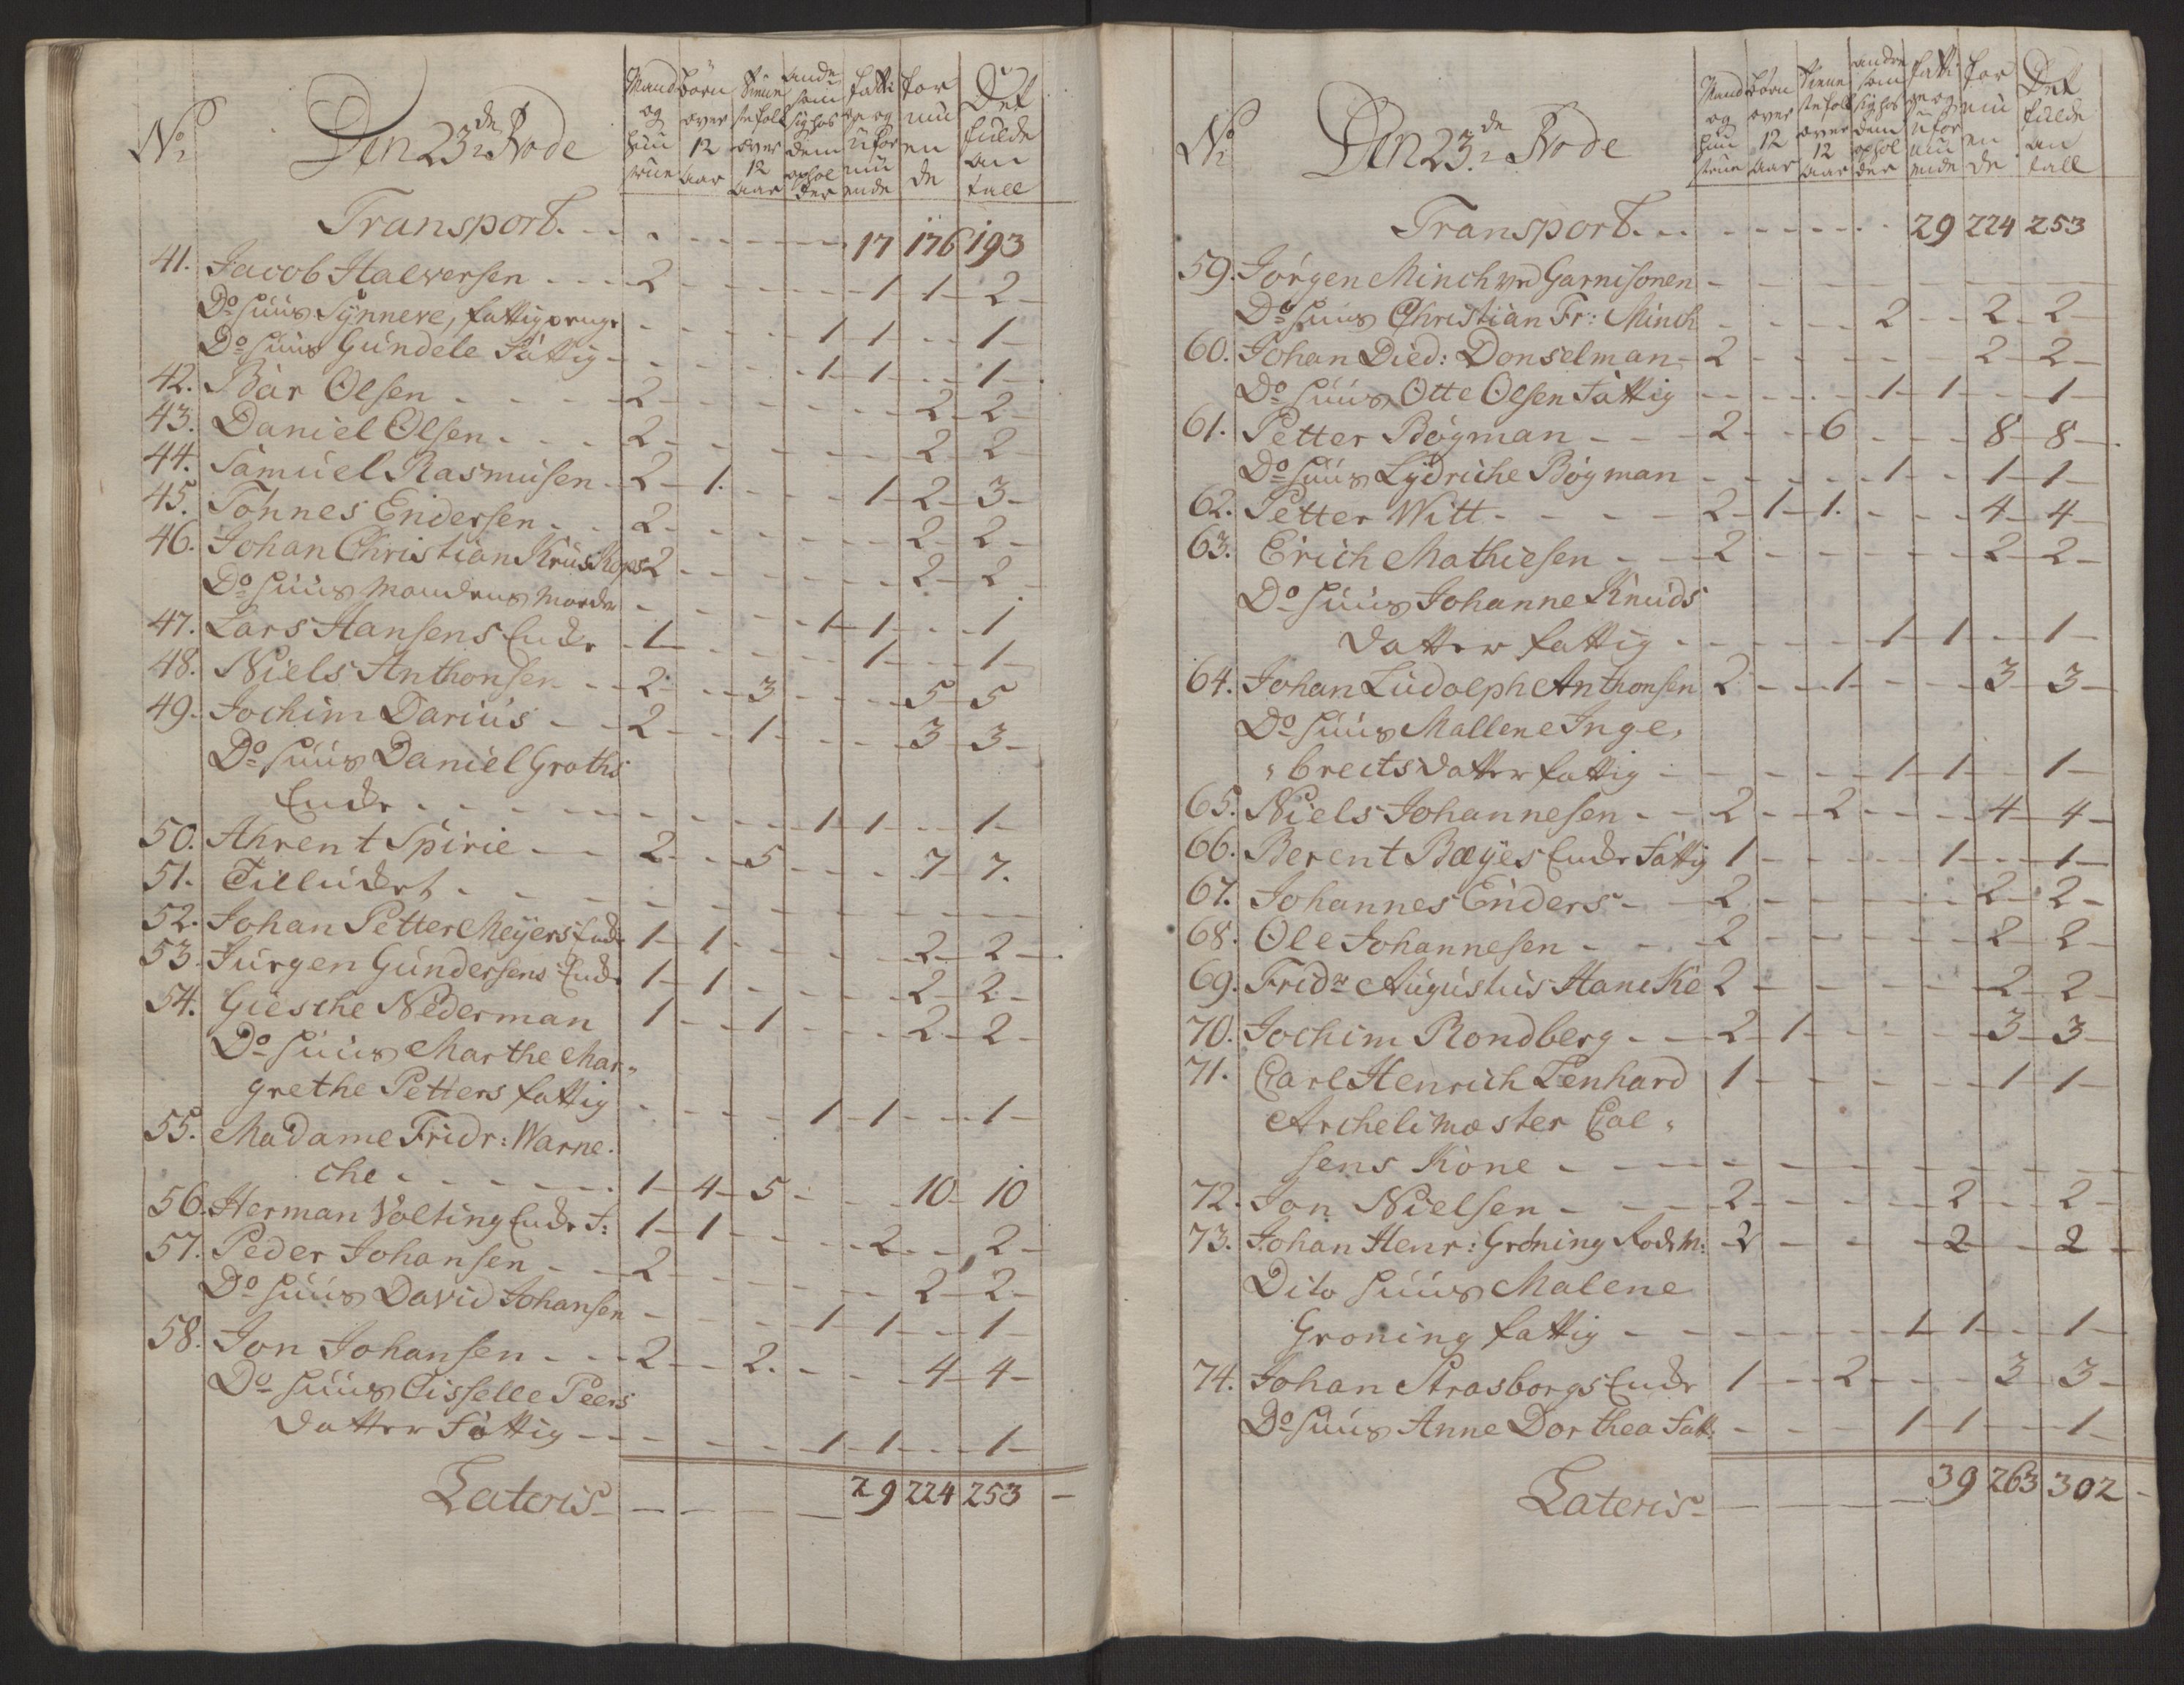 No Den 23de Rode
Mand og Hustrue
Börn over 12 aar
Tienestefolk over 12 aar
andre som sig hos dem opholder
fattige og uformuende
formuende
Det fulde antall
Transport. - - - - - 17 176 193
41. Jacob Halversen - - - 2 - - - - 1 - 1 - 2 -
Do Huus Synneve, fattigpenge - - - - 1 - 1 - - 1 -
Do Huus Gundele Fattig - - - - 1 - 1 - - 1 -
42. Bár Olsen - - - - 2 - - - - - 2 - 2 -
43. Daniel Olsen - - - 2 - - - - - 2 2 -
44. Samuel Rasmusen - 2 - 1. - - - 1 - 2 - 3 -
45. Tönnes Endersen - - 2 - - - - - 2 - 2 -
46. Johan Christian Krus 2 - - - - - 2 - 2 -
Do Huus Mandens Moder - - - - 1 - 1 - - 1
47. Lars Hansens Enche - 1 - - - - 1 - - 1 -
48. Niels Anthonsen - - 2 - - 3 - - - 5 - 5
49. Jochim Darius - - 2 - - 1 - - - 3 - 3 -
Do Huus Daniel Groths
Enche - - - - - - - 1 - 1 - - 1 -
50. Ahrent Spirie - - 2 - - 5 - - - 7 - 7.
51. Tillukket - - - - - - - - - -
52. Johan Petter Meyers Enche 1 - 1 - - - - 2 - 2 -
53. Jürgen Gundersens Enche 1 - 1 - - - - 2 - 2 -
54. Giesche Nederman 1 - - 1 - - - 2 - 2 -
Do Huus Marthe Mar„
grethe Petters fattig - - - - 1 - 1 - - 1 -
55. Madame Fridr: Warne.
che - - - - - 1 - 4 - 5 - - - 10 - 10
56. Herman Völting Enche F: 1 - 1 - - - - 2 - - 2 -
57. Peder Johansen - - 2 - - - - - 2 - 2 -
Do Huus David Johansen - - - - 1 - 1 - - 1 -
58. Jon Johansen - - - 2 - - 2. - - - 4 - 4 -
Do Huus Cisselle Peers
datter Fattig - - - - - 1 - 1 - - 1 -
Lateris - - - - 29 224 253 -
No Den 23de Rode
Mand og Hustrue
Börn over 12 aar
Tienestefolk over 12 aar
andre som sig hos dem opholder
fattige og uformuende
formuende
Det fulde antall
Transport. - - - - - 29 224 253
59. Jörgen Minch ved Garnisonen - - - - - - - -
Do Huus Christian Fr: Minch - - - - 2 - - 2 - 2 -
60. Johan Died: Donselman - 2 - - - - - 2 - 2 -
Do Huus Otte Olsen Fattig - - - - 1 - 1 - - 1 -
61. Petter Bögman - - - 2 - - 6 - - - 8 - 8 -
Do Huus Lydriche Bögman - - - - 1 - - 1 - 1 -
62. Petter Witt - - - - 2 - 1 - 1. - - - 4 - 4 -
63. Erich Mathiesen - - 2 - - - - - 2 - 2 -
Do Huus Johanne Knuds
datter fattig - - - - - 1 - 1 - - 1 -
64. Johan Ludolph Anthonsen 2 - - 1 - - - 3 - 3 -
Do Huus Mallene Inge„
„brectsdatter fattig - - - - 1 - 1 - - 1 -
65. Niels Johannesen - - 2 - - 2 - - - 4 - 4 -
66. Berent Bæyes Enche Fattig 1 - - - - 1 - - 1 -
67. Johannes Enders - - 2 - - - - - 2 - 2 -
68. Ole Johannesen - - - 2 - - - - - 2 - 2 -
69. Fridr Augustus Hancke 2 - - - - - 2 - 2 -
70. Jochim Rondberg - - 2 - 1 - - - - 3 - 3 -
71. Carl Henrich Lenhard 1 - - - - - 1 - 1 -
Archelimæster Cal„
sens Kone - - - - - - - - - -
72. Jon Nielsen - - - 2 - - - - 2 - - 2 -
73. Johan Henr: Gröning Rodem: - 2 - - - - 2 - - 2 -
Dito Huus Malene
Groning fattig - - - - - 1 - 1 - - 1 -
74. Johan Strasborgs Enche 1 - - 2 - - - 3 - 3 -
Do Huus Anne Dorthea Fatt: - - - - 1 - 1 - - 1 -
Lateris - - - - 39 263 302 -